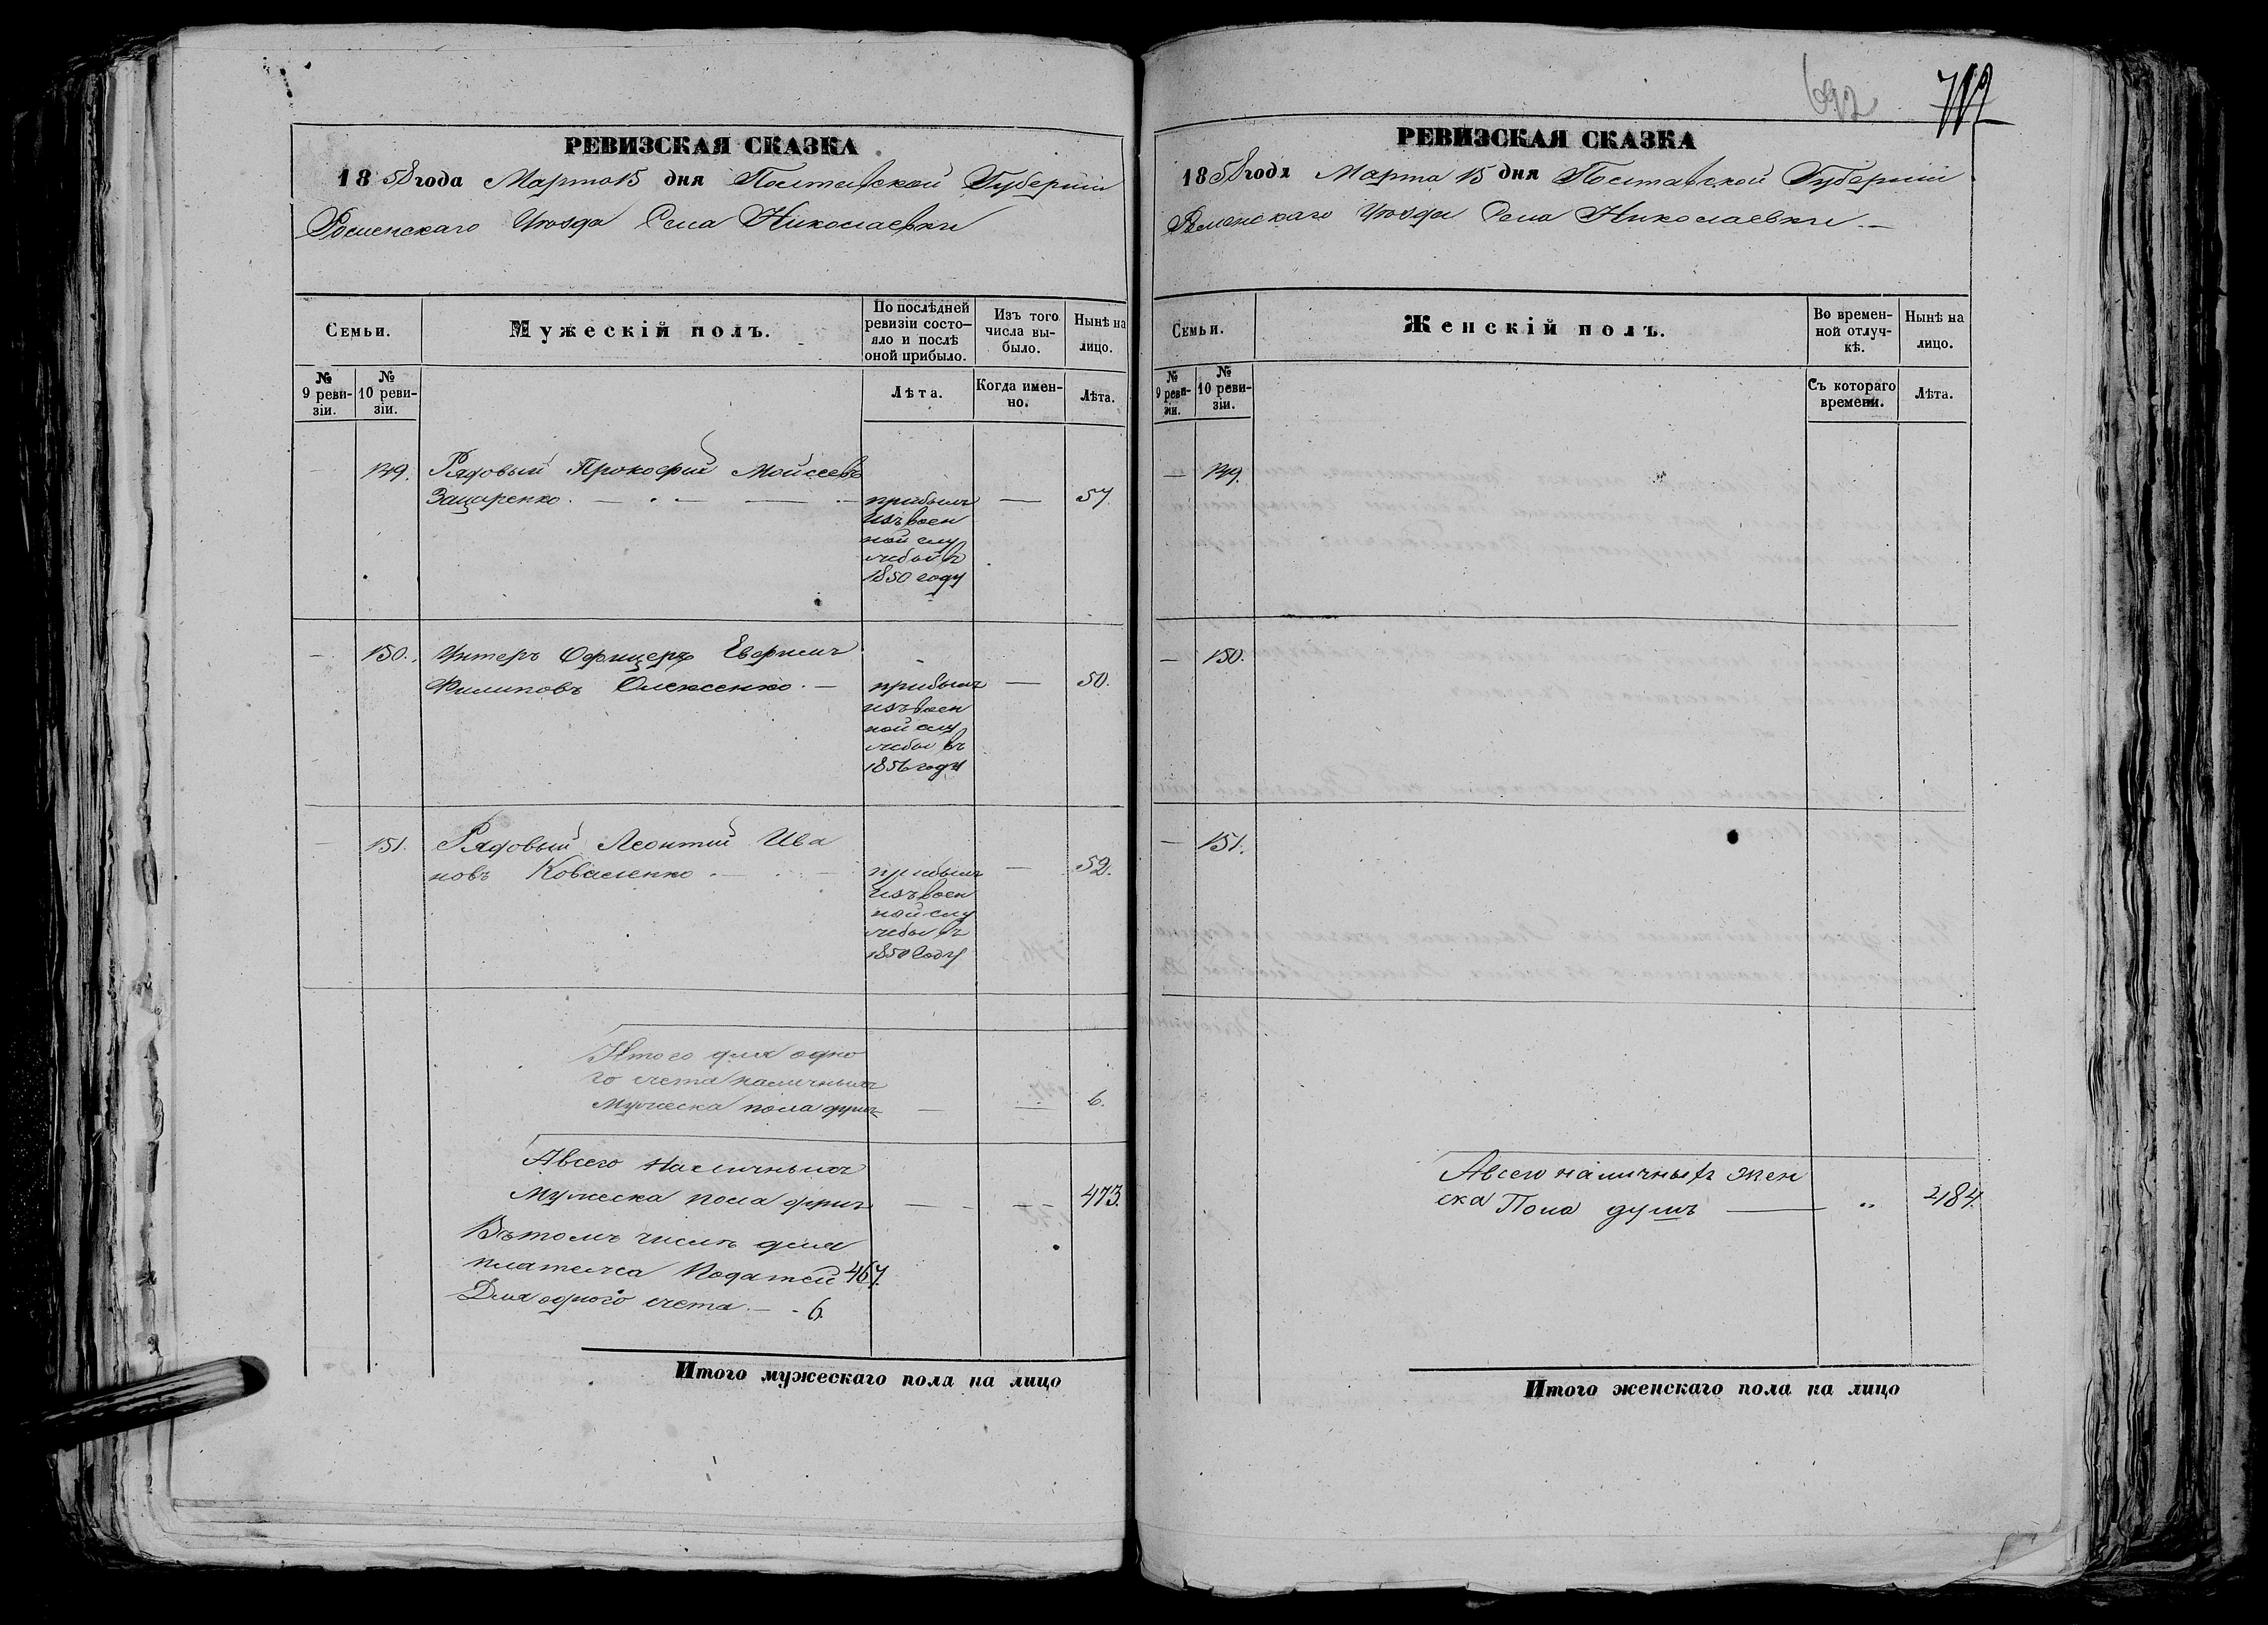 РЕВИЗСКАЯ СКАЗКА
1858 года Марта 15 дня Полтавской Губерніи
Роменскаго Уѣзда Села Николаевки
Семьи.
Мужескій полъ.
По послѣдней ревизіи состо-
яло и послѣ
оной прибыло.
Изъ того
числа вы-
было.
Нынѣ на
лицо.
№
9 реви-
зіи.
№
10 реви-
зіи.
Лѣта.
Когда имен-
но.
Лѣта.
— 149. Рядовый Прокофій Мойсеевъ
Зацаренко. — прибылъ — 57.
изъ воен
ной слу
жбы въ
1850 году
— 150. Унтеръ Офицеръ Евфимъ
Филиповъ Олексенко. — прибылъ — 50.
изъ воен
ной слу
жбы въ
1856 году
— 151. Рядовый Леонтій Ива
новъ Коваленко. — прибылъ — 52.
изъ воен
ной слу
жбы въ
1850 году
Итого для одно
го счета наличныхъ
Мужеска пола душъ — — 6.
А всего наличныхъ
Мужеска пола душъ — — 473.
Въ томъ числѣ для
платежа Податей 467.
Для одного счета — 6.
Итого мужескаго пола на лицо
692
РЕВИЗСКАЯ СКАЗКА
1858 года Марта 15 дня Полтавской Губерніи
Роменскаго Уѣзда Села Николаевки. —
Семьи.
Женскій полъ.
Во времен-
ной отлуч-
кѣ.
Нынѣ на
лицо.
№
9 реви-
зіи.
№
10 реви-
зіи.
Съ котораго
времени.
Лѣта.
— 149.
— 150.
— 151.
А всего наличныхъ жен
ска Пола душъ — „ 484.
Итого женскаго пола на лицо